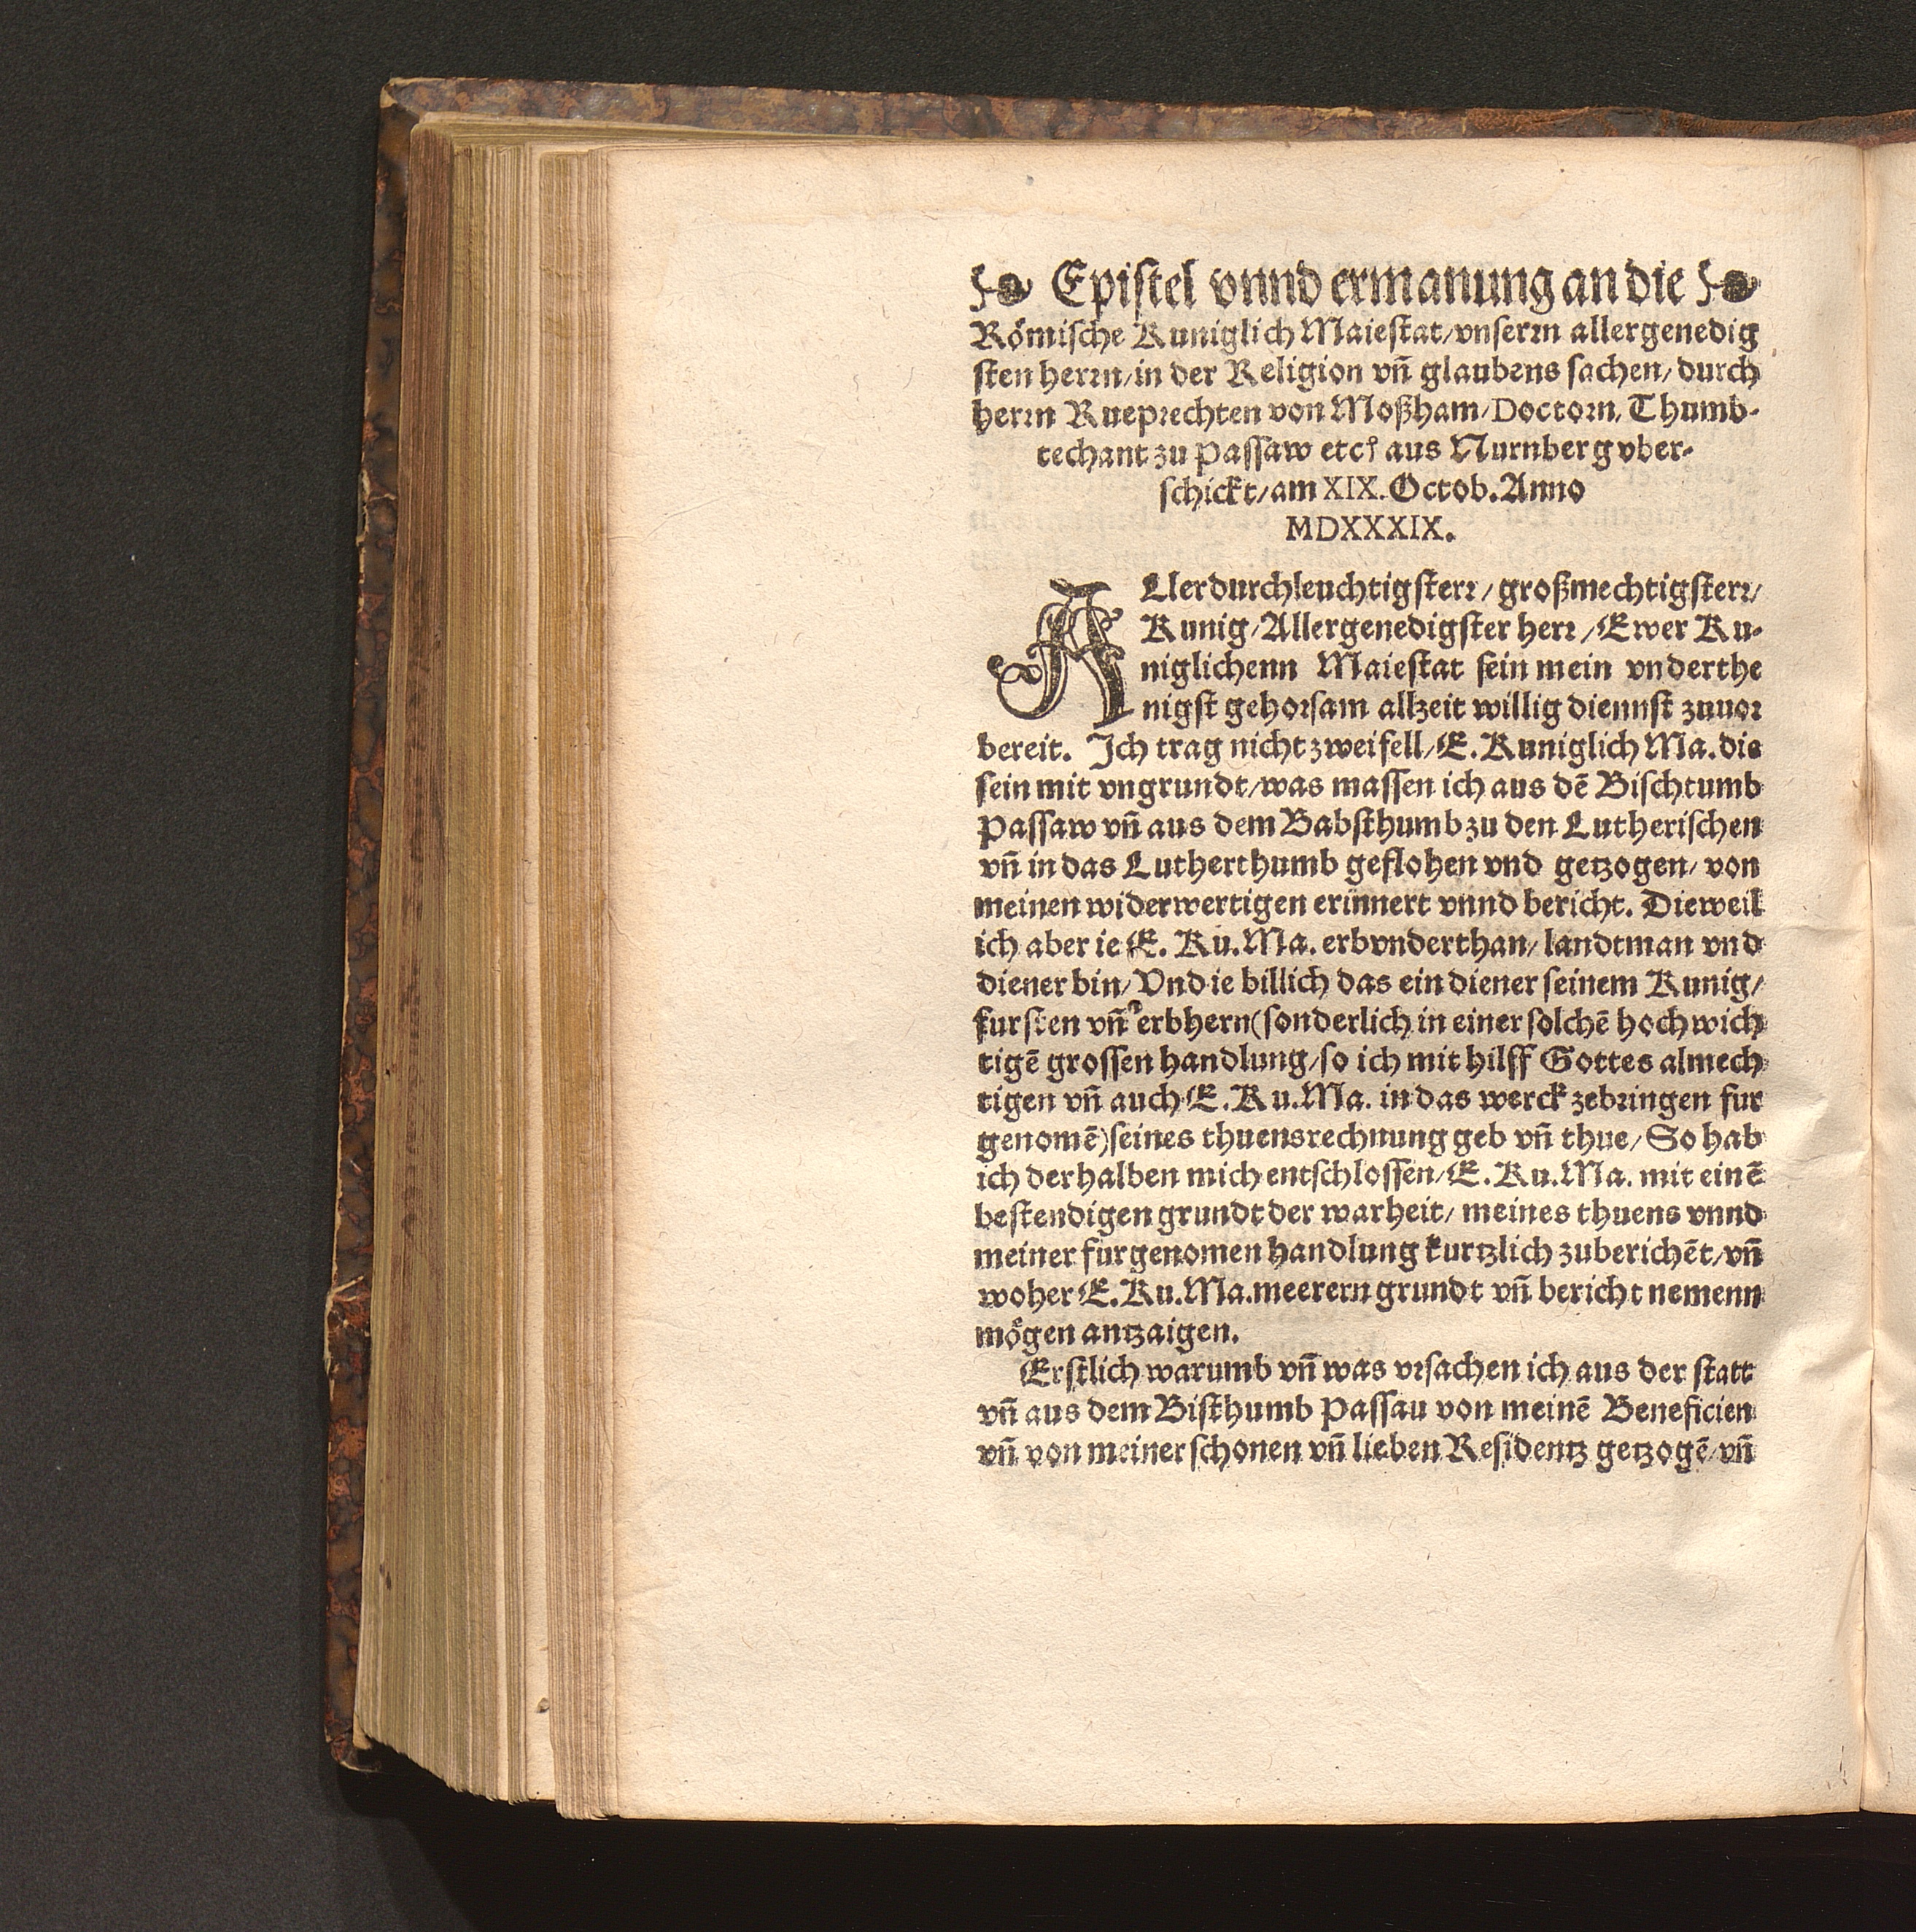 Epistel vnnd ermanung an die
Römische Kuniglich Maiestat/vnserm allergenedig
sten herrn/in der Religion vñ glaubens sachen/durch
herrn Rueprechten von Moßham/Doctorn, Thumb-
techant zu Passaw etc? aus Nurnberg vber-
schickt/am XIX. Octob. Anno
MDXXXIX.
ALlerdurchleuchtigsterr/großmechtigsterr/
Kunig/Allergenedigster herr/Ewer Ku-
niglichenn Maiestat sein mein vnderthe
nigst gehorsam allzeit willig diennst zuuor
bereit. Ich trag nicht zweifell/E. Kuniglich Ma. die
sein mit vngrundt/was massen ich aus dẽ Bischtumb
Passaw vñ aus dem Babsthumb zu den Lutherischen
vñ in das Lutherthumb geflohen vnd getzogen/von
meinen widerwertigen erinnert vnnd bericht. Dieweil
ich aber ie E. Ku. Ma. erbvnderthan/landtman vnd
diener bin/Vnd ie billich das ein diener seinem Kunig/
fursten vñ erbhern(sonderlich in einer solchẽ hochwich
tigẽ grossen handlung/so ich mit hilff Gottes almech
tigen vñ auch E. Ku. Ma. in das werck zebringen fur
genomẽ)seines thuens rechnung geb vñ thue/So hab
ich derhalben mich entschlossen/E. Ku. Ma. mit einẽ
bestendigen grundt der warheit/meines thuens vnnd
meiner furgenomen handlung kurtzlich zuberichẽt/vñ
woher E. Ku. Ma. meerern grundt vñ bericht nemenn
mögen antzaigen.
Erstlich warumb vñ was vrsachen ich aus der statt
vñ aus dem Bisthumb Passau von meinẽ Beneficien
vñ von meiner schonen vñ lieben Residentz getzogẽ/vñ